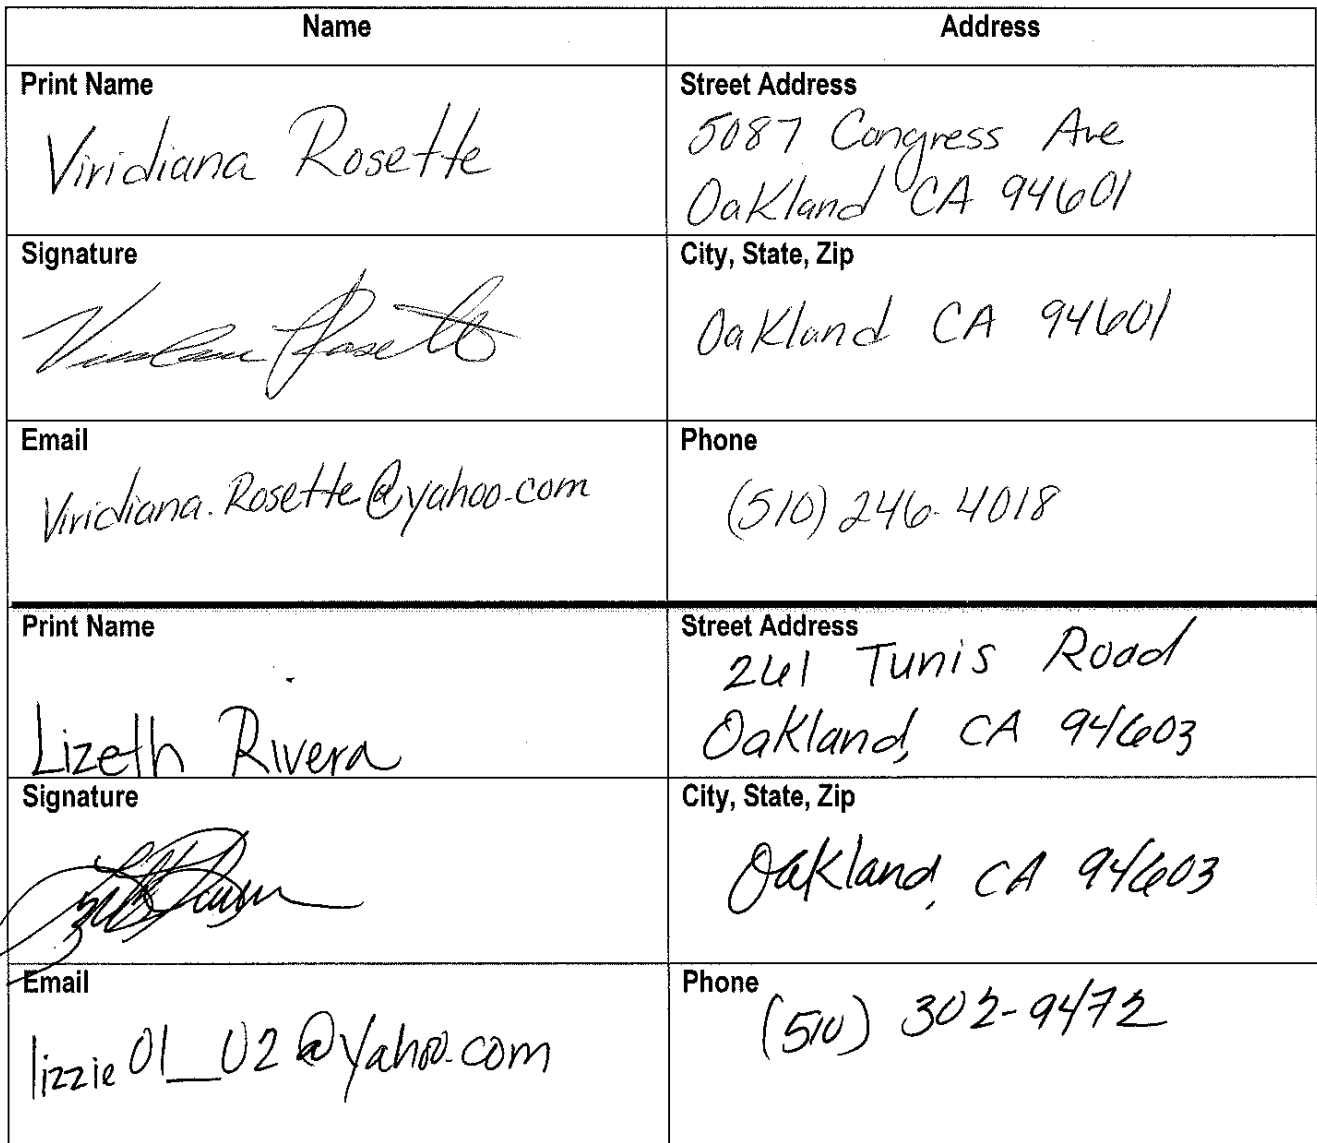 Name
Address
Print Name
Viridiana Rosette
Street Address
5087 Congress Ave
Oakland CA 94601
Signature
City, State, Zip
Oakland CA 94601
Email
Viridiana.Rosette@yahoo.com
Phone
(510) 246-4018
Print Name
Lizeth Rivera
Street Address
261 Tunis Road
Oakland, CA 94603
Signature
City, State, Zip
Oakland, CA 94603
Email
lizzie01__02@yahoo.com
Phone
(510) 302-9472